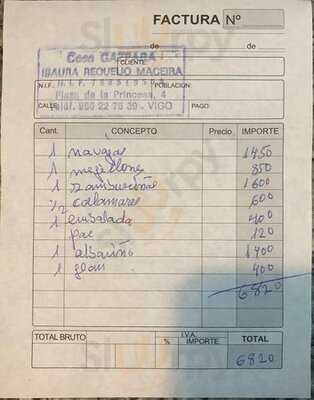 FACTURA Nº
de de
Casa GAZPARA
CLIENTE:
ISAURA REQUEIJO MACEIRA
N.I.F. N.I.F.
POBLACIÓN:
Plaza de la Princesa, 4
CALLE: Telf. 986 22 76 39 - VIGO PAGO:
Cant. CONCEPTO Precio IMPORTE
1 navajas 1450
1 mejillones 850
1 zamburiñas 1600
1/2 calamares 600
1 ensalada 400
pan 120
1 albariño 1400
1 flan 400
6820
TOTAL BRUTO % I.V.A. IMPORTE TOTAL
6820